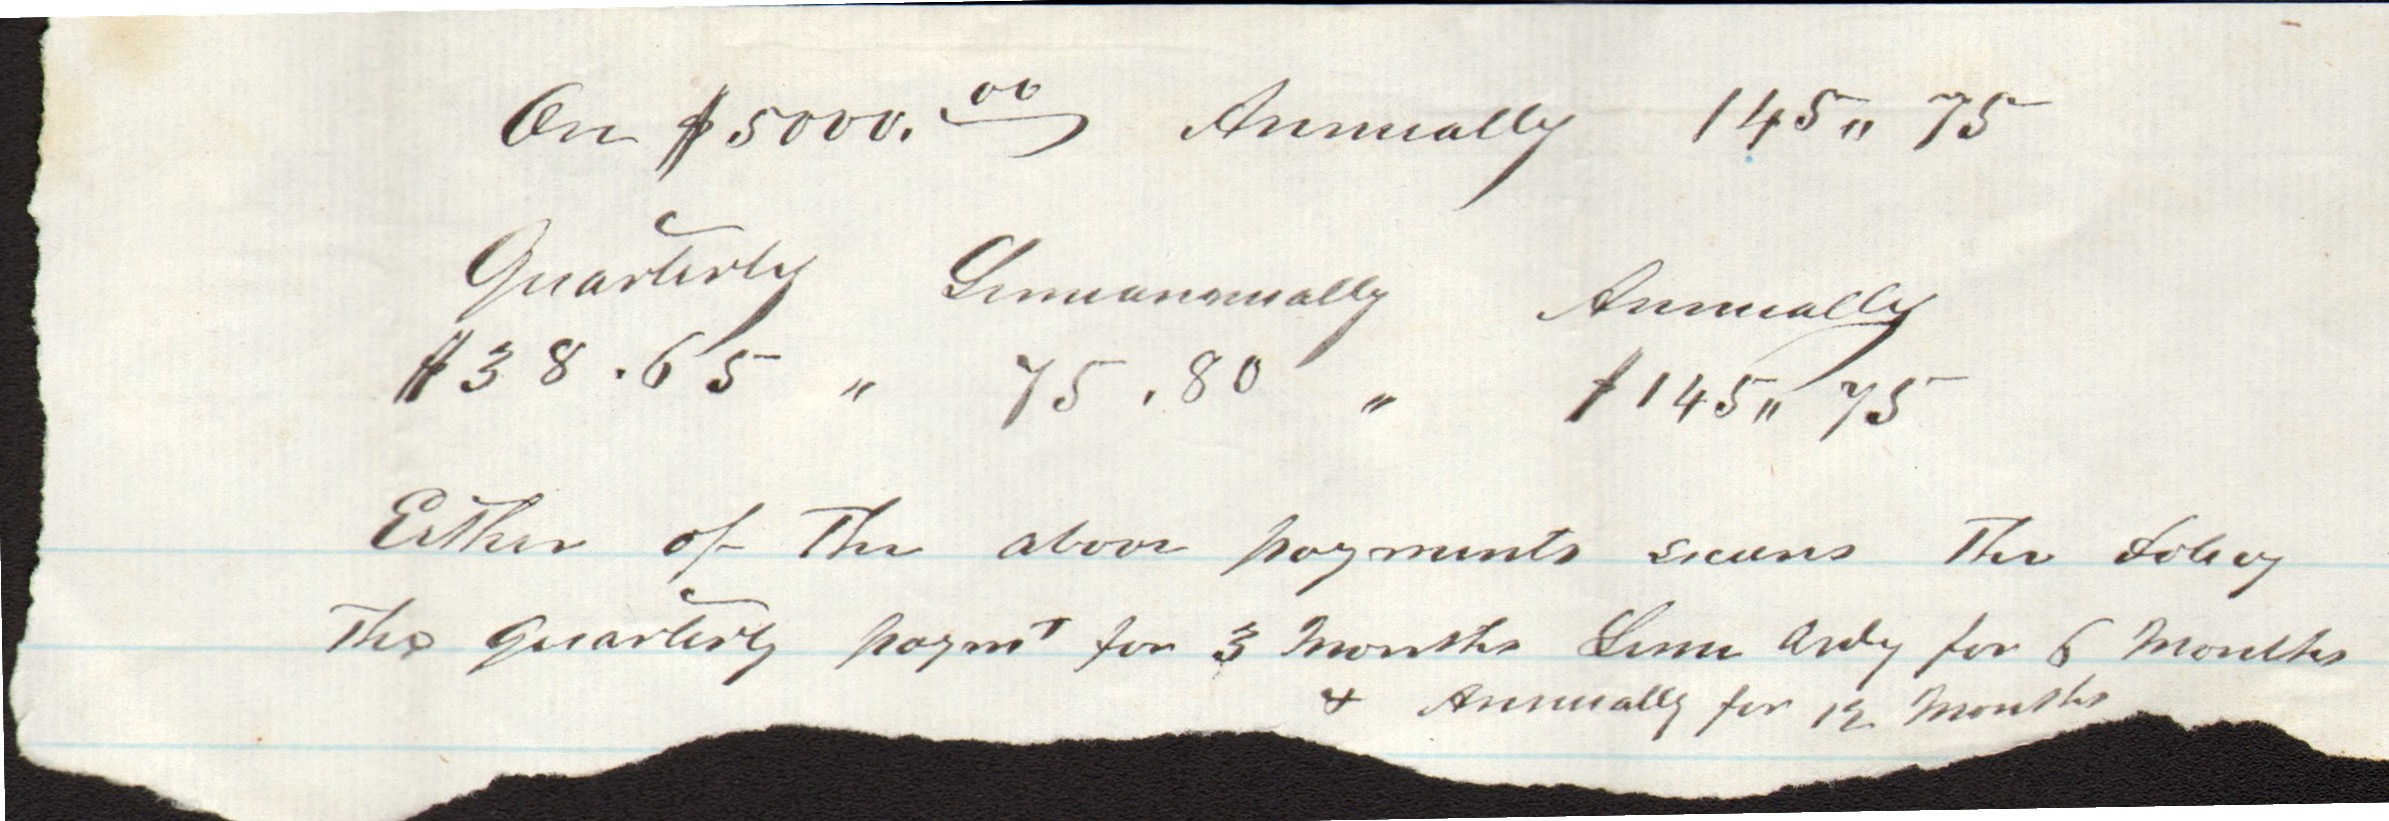 On $5000.00 Annually 145 " 75
Quarterly Semiannually Annually
$38.65 " 75.80 " $145 " 75
Either of the above payments secures the Policy
The quarterly paymt for 3 Months Semi for 6 Months
& Annually for 12 Months